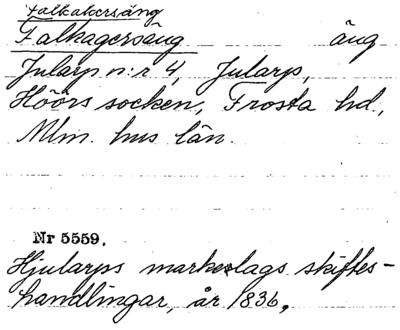 Falkakersäng
Falkagersäng äng
Jularp n:r 4, Jularp,
Höörs socken, Frosta hd.,
Mlm. hus län.
Nr 5559.
Hjularps markeslags skiftes-
handlingar, år 1836.